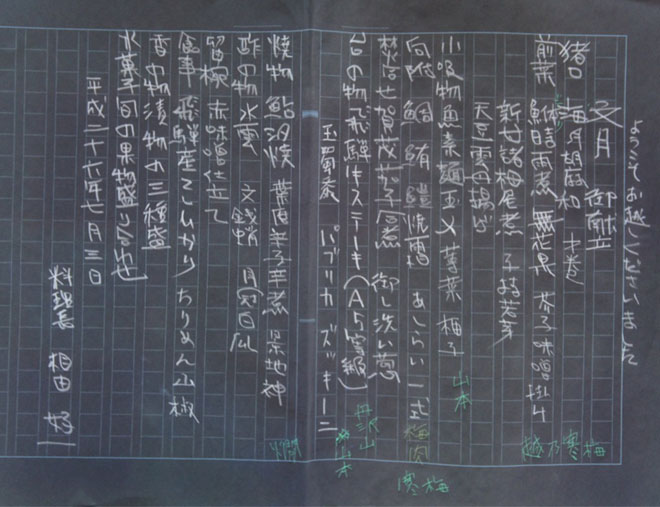 ようこそお越しくださいませ
文月 御献立
猪口 海月胡麻和 才巻
前菜 鮴時雨煮 無花果 芥子味噌掛け
新甘諸梅尾煮 子持若芽
天豆雲丹揚げ
小吸物 魚素麺 玉〆 蓴菜 柚子
山本
向附 鯛 鮪 鱧焼霜 あしらい一式
焚合せ 賀茂茄子石煮 御し洗い葱
台の物 飛騨牛ステーキ(A5等級)
玉蜀黍 パプリカ ズッキーニ
焼物 鮎沼焼 葉唐辛子辛煮 茗地神
酢の物 水雲 文銭蛸 月冠白瓜
留椀 赤味噌仕立て
食事 飛騨産こしひかり ちりめん山椒
香の物 漬物の三種盛
水菓子 旬の果物盛り合せ
平成二十六年七月三日
料理長 相田 好一
越乃寒梅
寒梅
丹沢山
山本